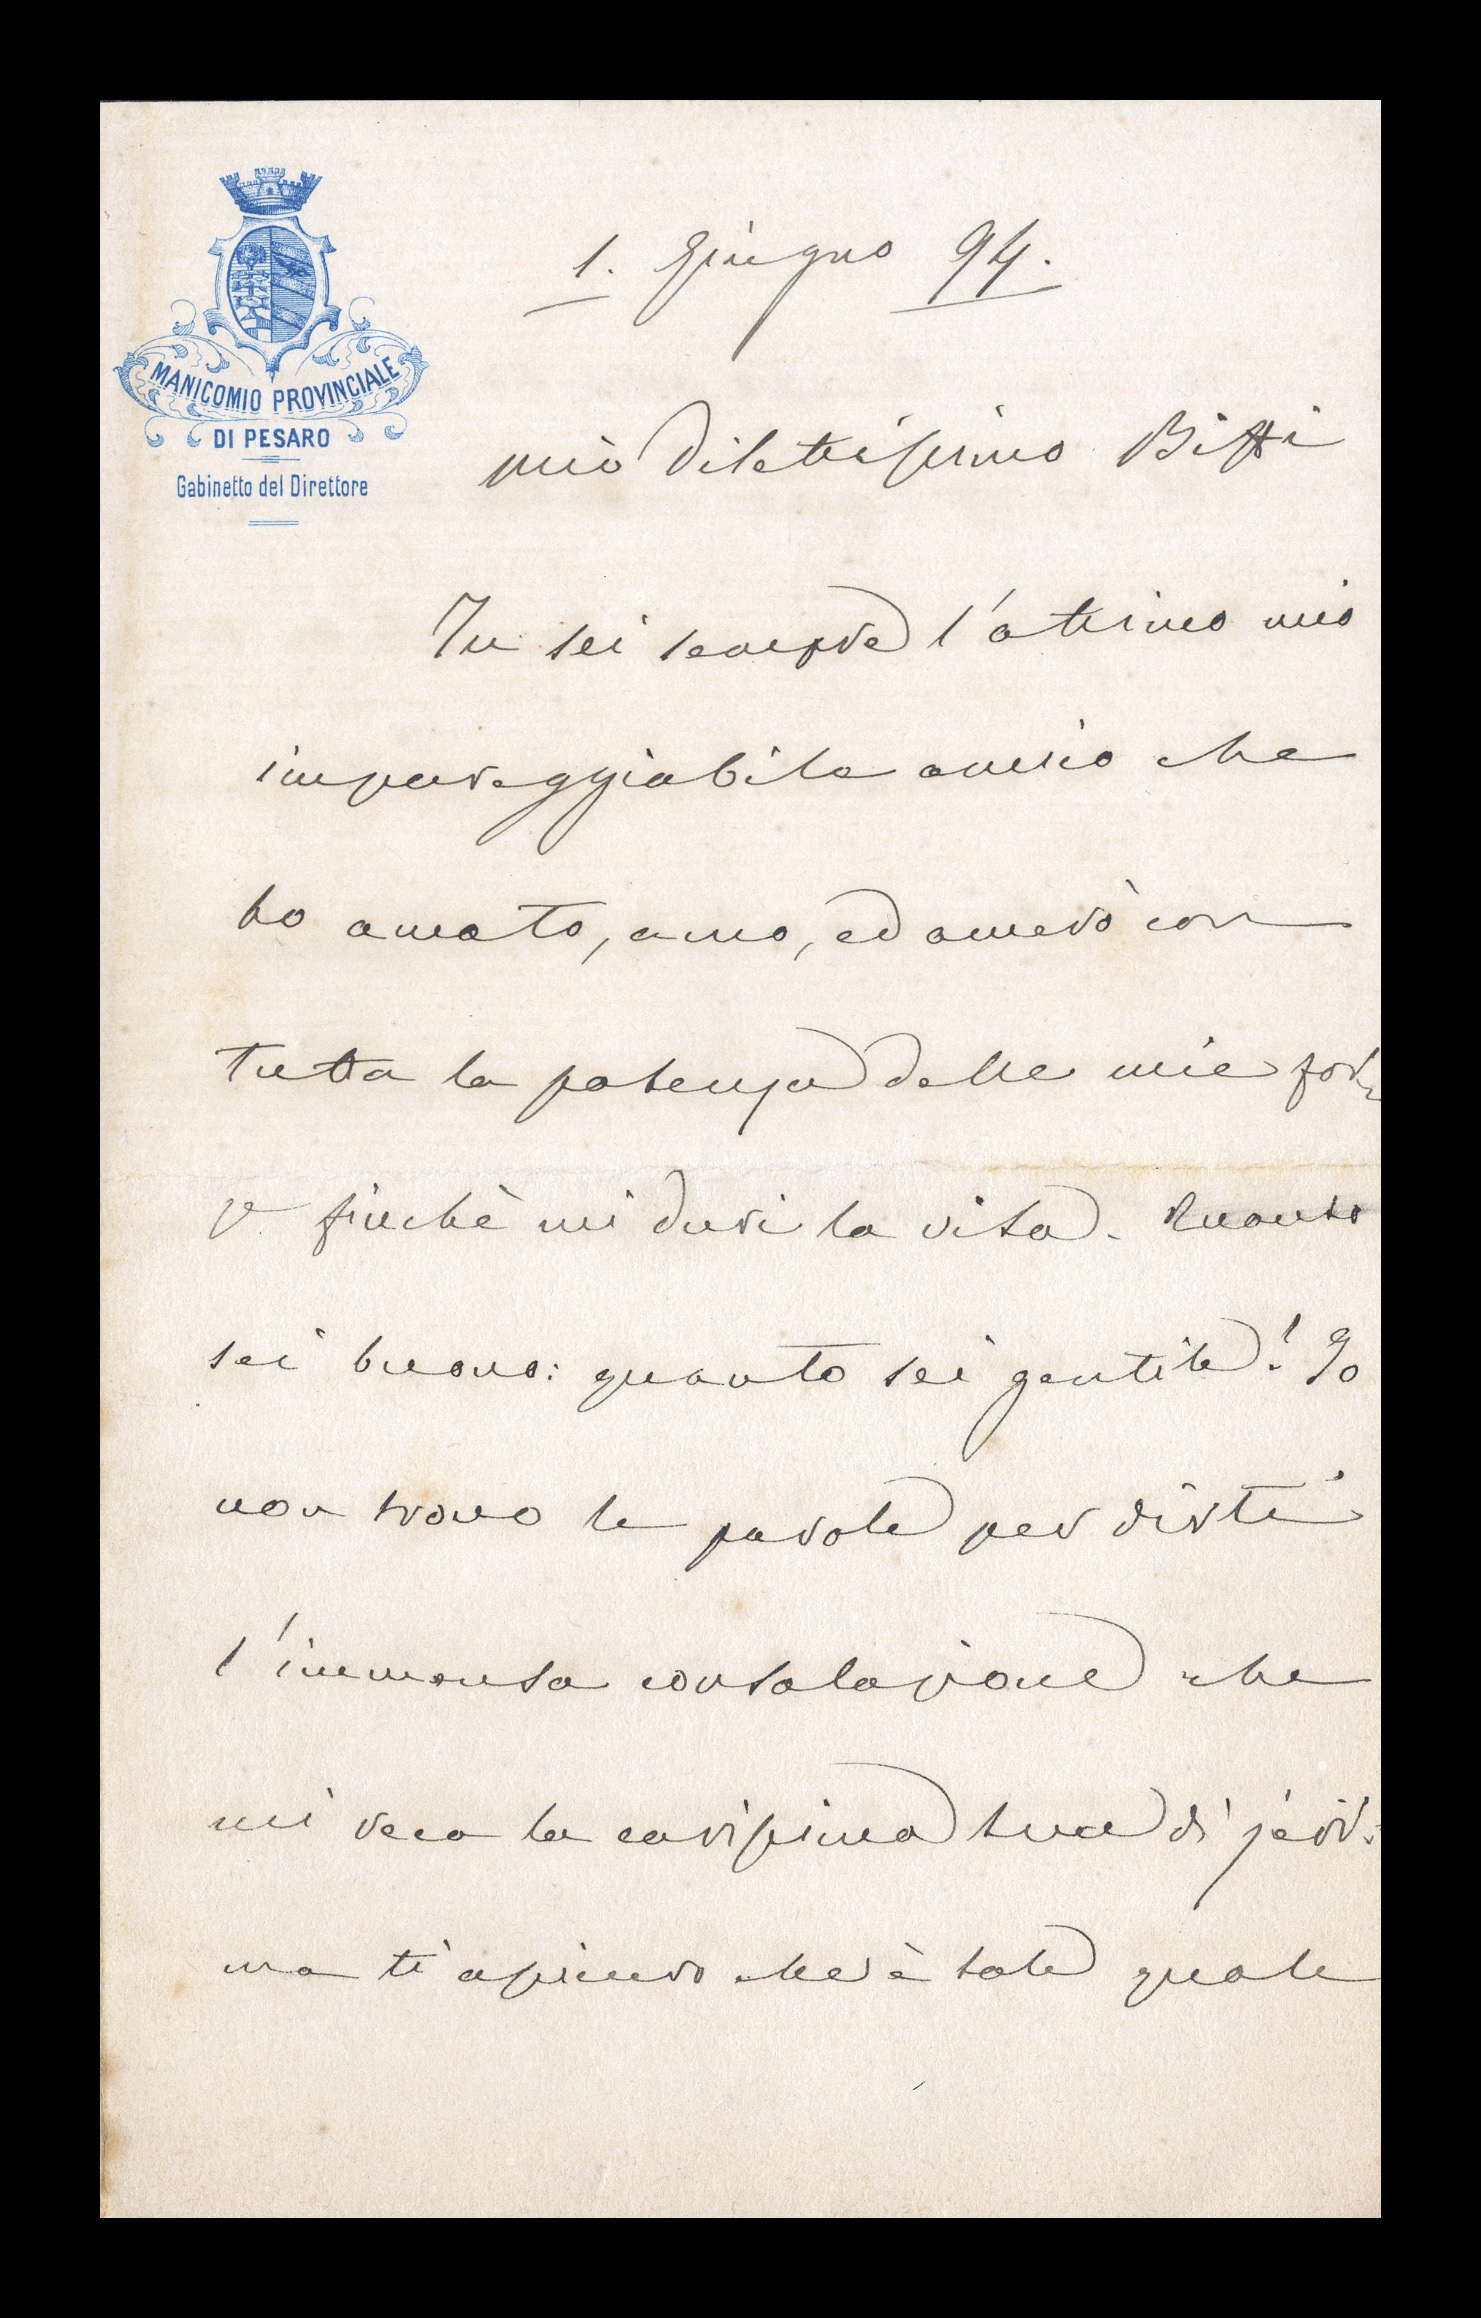 MANICOMIO PROVINCIALE
DI PESARO
Gabinetto del Direttore
1. Giugno 94.
mio dilettissimo Biffi
Tu sei sempre l'ottimo mio
impareggiabile amico che
ho amato, amo, ed amerò con
tutta la potenza delle mie for,
ze finchè mi duri la vita. Quanto
sei buono: quanto sei gentile! Io
non trovo le parole per dirti
l'immensa consolazione che
mi reca la carissima tua di jeri:
ma ti assicuro che è tale quale